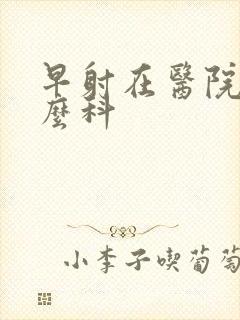 早射在醫院
麼科
小李子喫葡萄